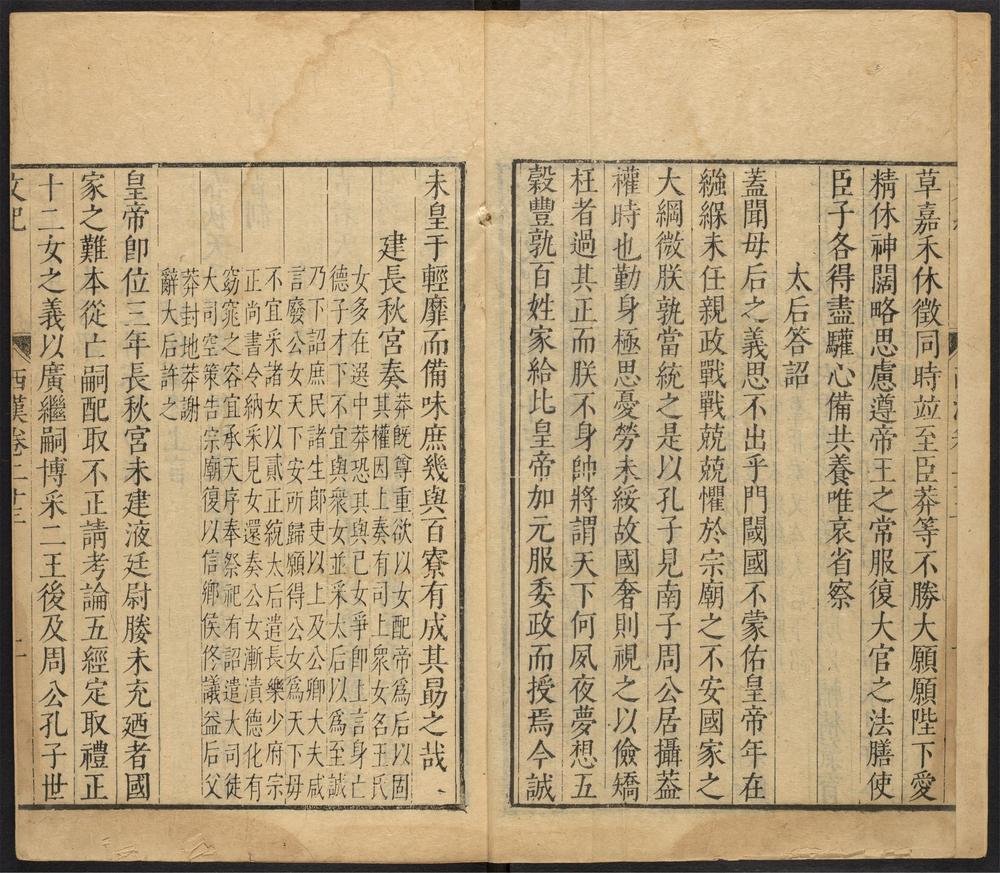 草嘉禾休徵同時竝至臣莽等不勝大願願陛下愛
精休神闊略思慮遵帝王之常服復大官之法膳使
臣子各得盡驩心備共養唯哀省察
太后答詔
蓋聞母后之義思不出乎門閾國不蒙佑皇帝年在
繈緥未任親政戰戰兢兢懼於宗廟之不安國家之
大綱微朕孰當統之是以孔子見南子周公居攝葢
權時也勤身極思憂勞未綏故國奢則視之以儉矯
枉者過其正而朕不身帥將謂天下何夙夜夢想五
穀豐孰百姓家給比皇帝加元服委政而授焉今誠
未皇于輕靡而備味庶幾與百寮有成其勗之哉
建長秋宮奏
莽既尊重欲以女配帝爲后以固
其權因上奏有司上衆女名王氏
女多在選中莽恐其與已女爭卽上言身亡
德子才下不宜與衆女並采太后以爲至誠
乃下詔庶民諸生郎吏以上及公卿大夫咸
言廢公女天下安所歸願得公女爲天下母
不宜采諸女以貳正統太后遣長樂少府宗
正尚書令納采見女還奏公女漸漬德化有
窈窕之容宜承天序奉祭祀有詔遣大司徒
大司空策告宗廟復以信鄉侯佟議益后父
莽封地莽謝
辭大后許之
皇帝卽位三年長秋宮未建液廷尉媵未充廼者國
家之難本從亡嗣配取不正請考論五經定取禮正
十二女之義以廣繼嗣博采二王後及周公孔子世
文紀
西漢卷二十三